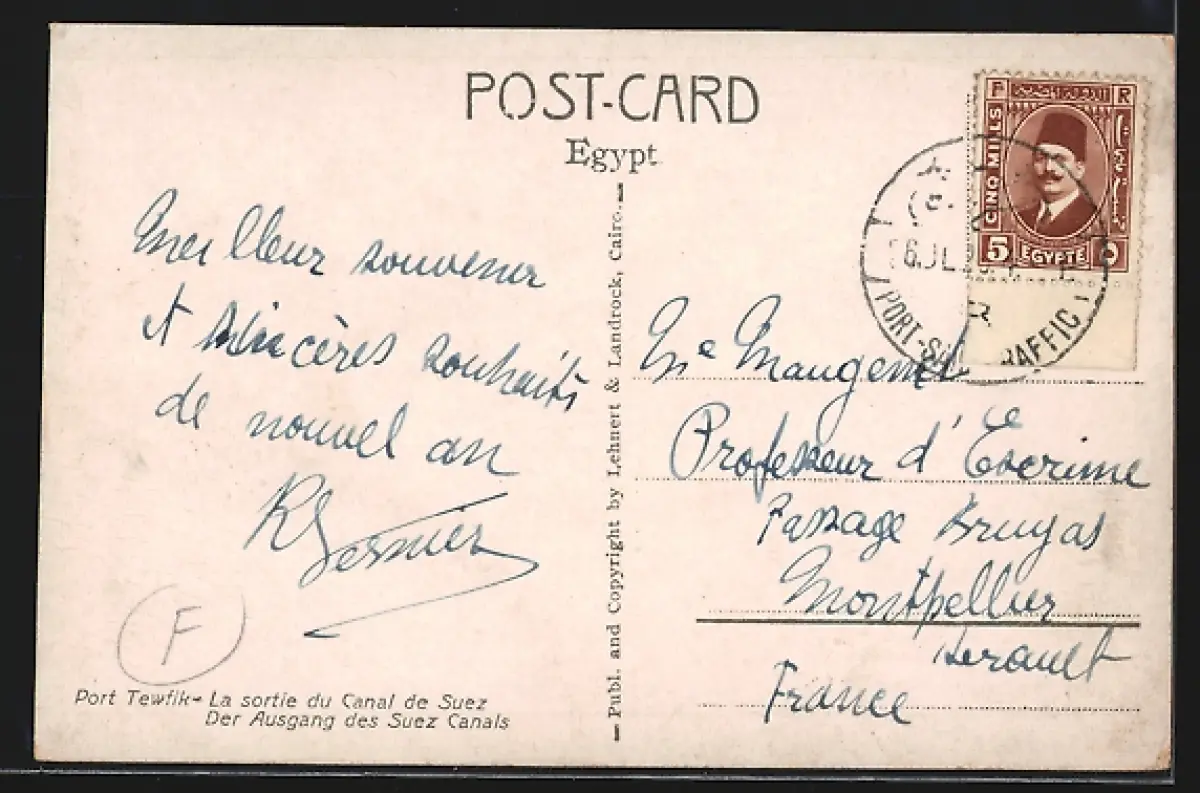 POST-CARD
Egypt
Meilleur souvenir
et sincères souhaits
de nouvel an
F
Port Tewfik - La sortie du Canal de Suez
Der Ausgang des Suez Canals
Publ. and Copyright by Lehnert & Landrock, Cairo.
F R
CINQ MILLS
5 EGYPTE ٥
PORT-SAID TRAFFIC
Me
Professeur d'Escrime
Passage Bruyas
Montpellier
Herault
France